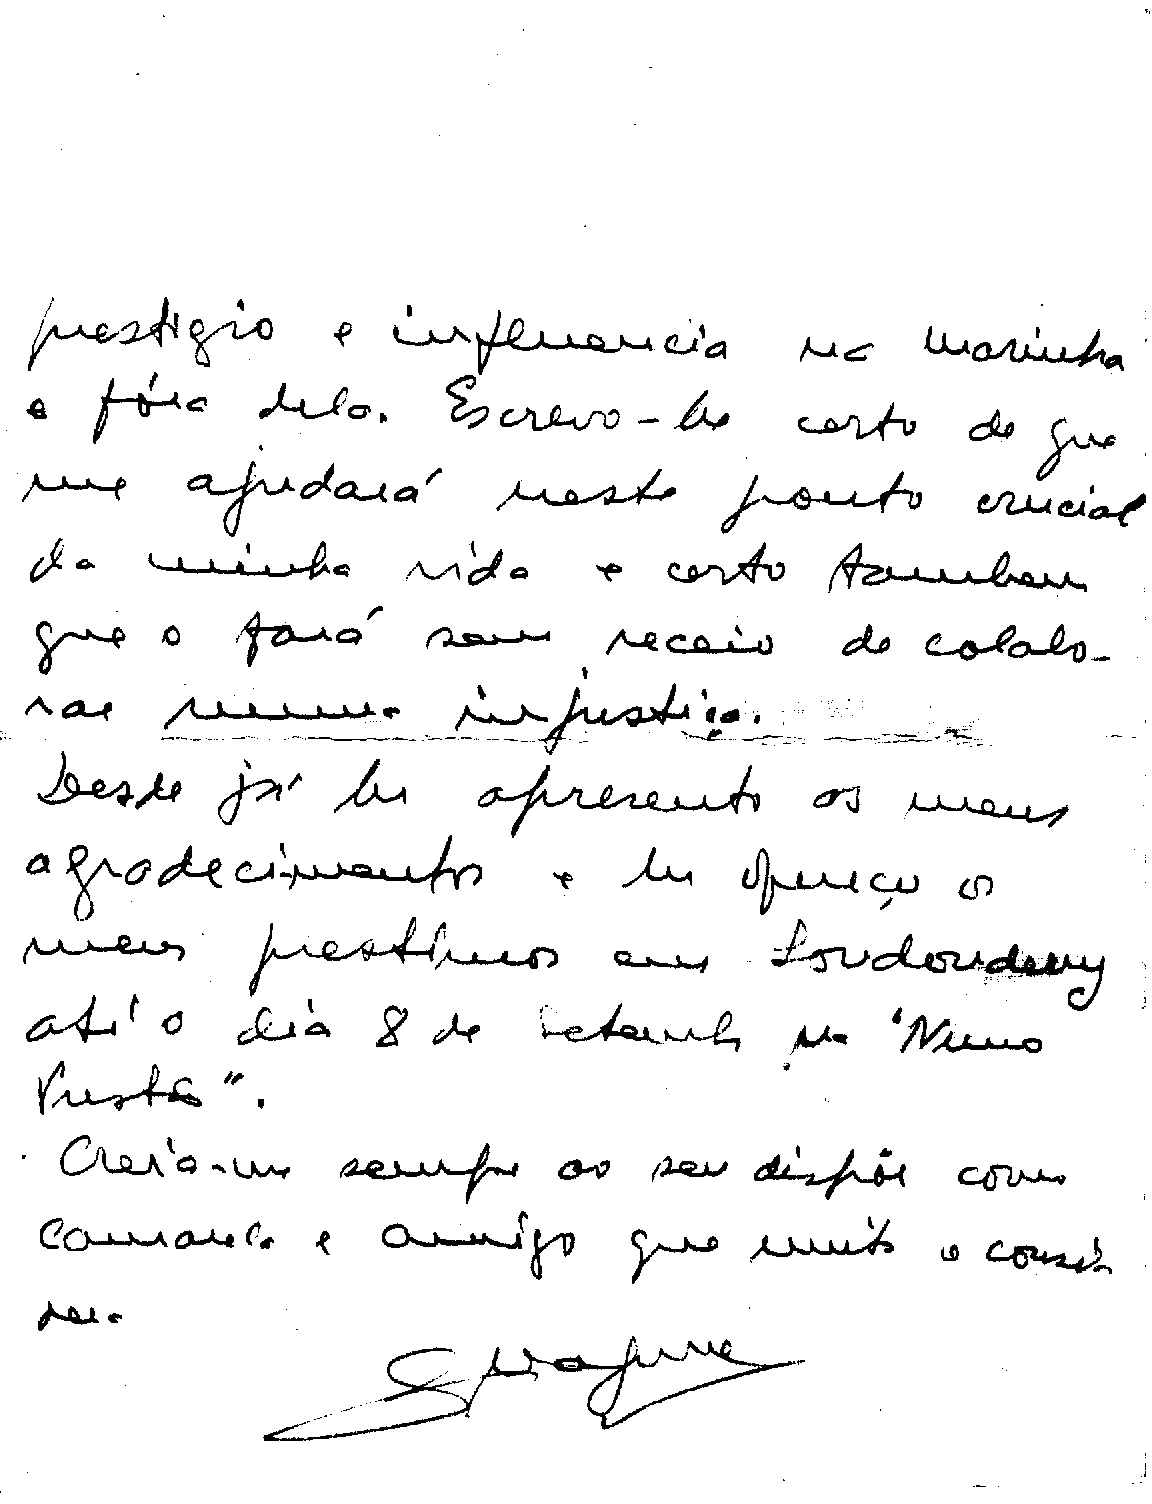 prestigio e influencia na marinha
e fóra dela. Escrevo-lhe certo de que
me ajudará neste ponto crucial
da minha vida e certo tambem
que o fará sem receio de colabo-
rar numa injustiça.
Desde já lhe apresento os meus
agradecimentos e lhe ofereço os
meus prestimos em Londonderry
até o dia 8 de setembro na "Nuno
Tristão".
Creia-me sempre ao seu dispôr como
camarada e amigo que muito o consi-
dera